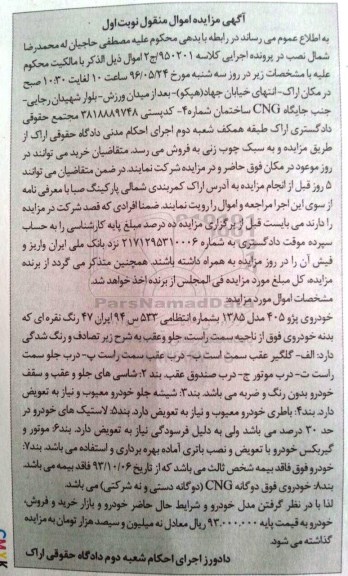 آگهی مزایده اموال منقول نوبت اول
به اطلاع عموم می رساند در رابطه با بدهی محکوم علیه مصطفی حاجیان له محمدرضا
شمال نصب در پرونده اجرایی کلاسه ۹۵۰۲۰۱/ج۲ اموال ذیل الذکر با مالکیت محکوم
علیه با مشخصات زیر در روز سه شنبه مورخ ۹۶/۰۵/۲۴ ساعت ۱۰ لغایت ۱۰:۳۰ صبح
در مکان اراک- انتهای خیابان جهاد(هپکو)- بعد از میدان ورزش- بلوار شهیدان رجایی-
جنب جایگاه CNG ساختمان شماره۴- کدپستی ۳۸۱۸۸۸۹۷۴۸ مجتمع حقوقی
دادگستری اراک طبقه همکف شعبه دوم اجرای احکام مدنی دادگاه حقوقی اراک از
طریق مزایده و به سبک چوب زنی به فروش می رسد. متقاضیان خرید می توانند در
روز موعود در مکان فوق حاضر و در مزایده شرکت نمایند. در ضمن متقاضیان می توانند
۵ روز قبل از انجام مزایده به آدرس اراک کمربندی شمالی پارکینگ صبا با معرفی نامه
از سوی این اجرا مراجعه و اموال را رویت نمایند. ضمنا افرادی که قصد شرکت در مزایده
را دارند می بایست قبل از برگزاری مزایده ده درصد مبلغ پایه کارشناسی را به حساب
سپرده موقت دادگستری به شماره ۲۱۷۱۲۹۵۳۱۰۰۰۶ نزد بانک ملی ایران واریز و
فیش آن را در روز مزایده به همراه داشته باشند. همچنین متذکر می گردد از برنده
مزایده، کل مبلغ مورد مزایده فی المجلس از برنده اخذ خواهد شد.
مشخصات اموال مورد مزایده:
خودروی پژو ۴۰۵ مدل ۱۳۸۵ بشماره انتظامی ۵۳۳ س ۹۴ ایران ۴۷ رنگ نقره ای که
بدنه خودروی فوق از ناحیه سمت راست، جلو وعقب به شرح زیر تصادف و رنگ شدگی
دارد: الف- گلگیر عقب سمت است ب- درب عقب سمت راست پ- درب جلو سمت
راست ت- درب موتور ج- درب صندوق عقب. بند ۲: شاسی های جلو و عقب و سقف
خودرو بدون رنگ و ضربه می باشد. بند۳: شیشه جلو خودرو معیوب و نیاز به تعویض
دارد. بند۴: باطری خودرو معیوب و نیاز به تعویض دارد. بند۵: لاستیک های خودرو در
حد ۳۰ درصد می باشد ولی به دلیل فرسودگی نیاز به تعویض دارد. بند۶: موتور و
گیربکس خودرو با تعویض و نصب باتری آماده بهره برداری و استفاده می باشد. بند۷:
خودرو فوق فاقد بیمه شخص ثالث می باشد که از تاریخ ۹۳/۱۰/۰۶ فاقد بیمه می باشد.
بند۸: خودروی فوق دوگانه CNG (دوگانه دستی و نه شرکتی) می باشد.
لذا با در نظر گرفتن مدل خودرو و شرایط حال حاضر خودرو و بازار خرید و فروش،
خودرو به قیمت پایه ۹۳.۰۰۰.۰۰۰ ریال معادل نه میلیون و سیصد هزار تومان به مزایده
گذاشته می شود.
دادورز اجرای احکام شعبه دوم دادگاه حقوقی اراک
CMYK